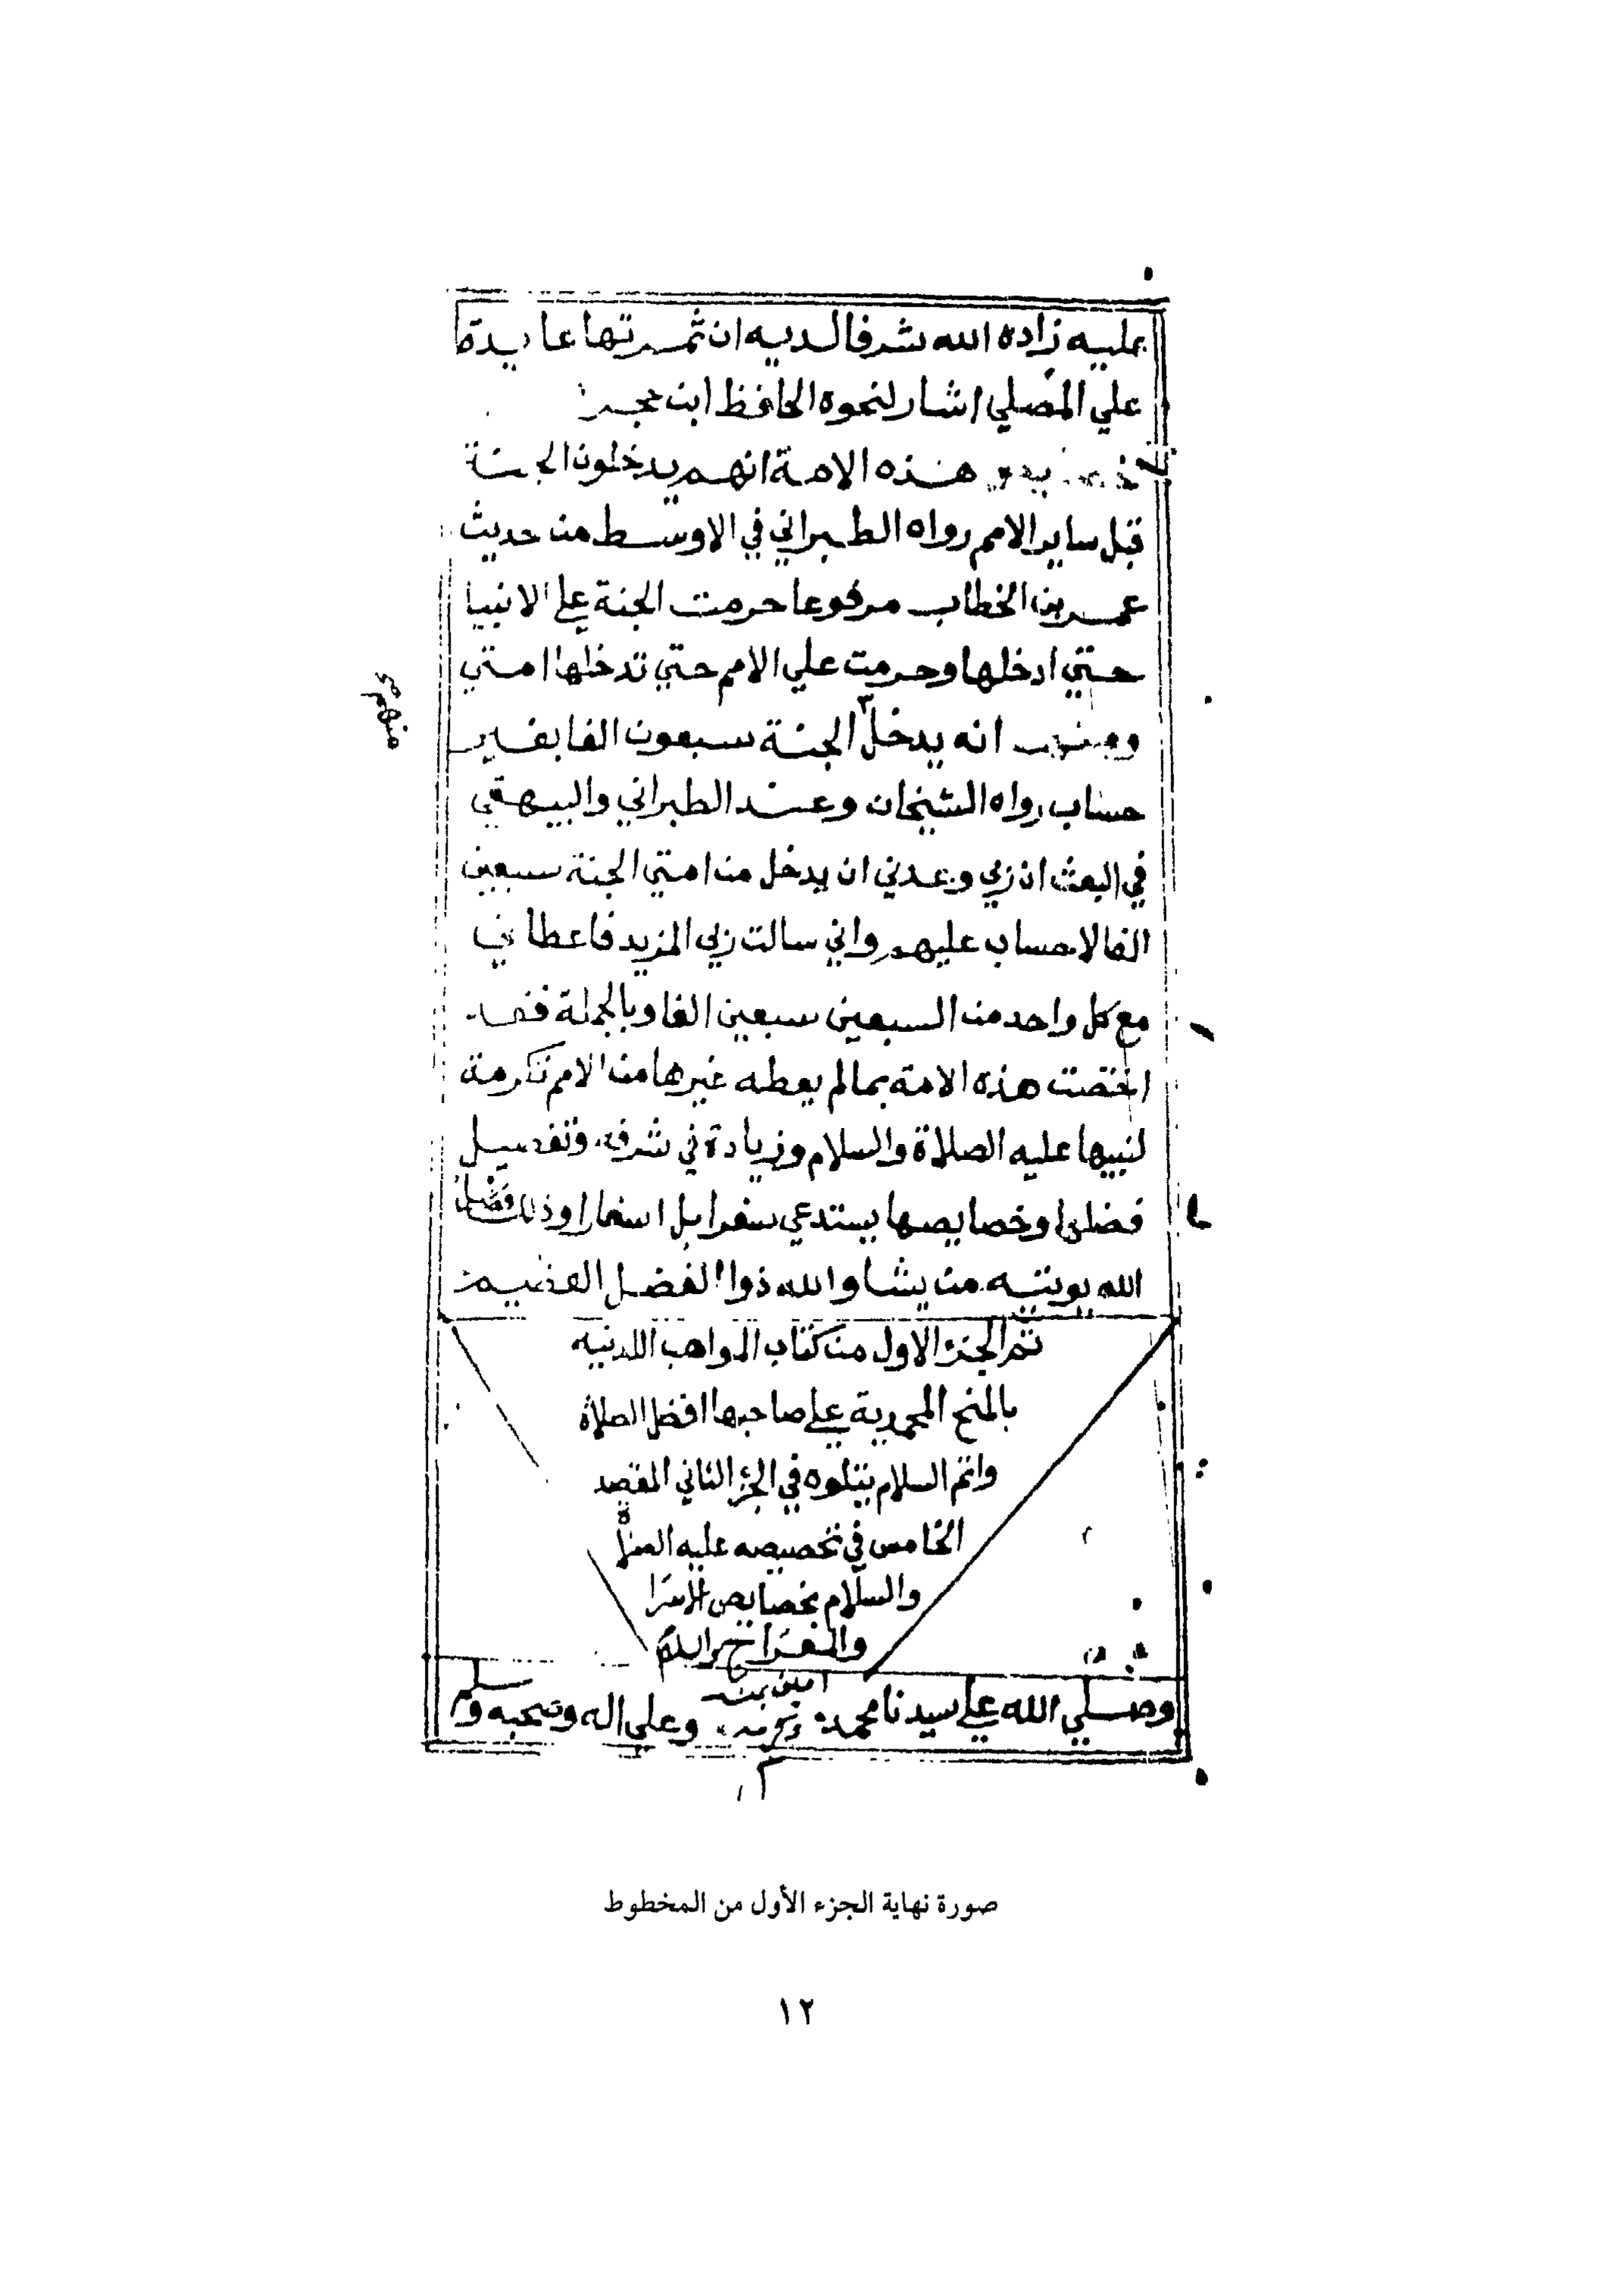 عليه زاده الله شرفا لديه ان ثمرتها عايدة
علي المصلي اشار لنحوه الحافظ ابن حجر
هذه الامة انهم يدخلون الجنة
قبل ساير الامم رواه الطبراني في الاوسط من حديث
عمر بن الخطاب مرفوعا حرمت الجنة علي الانبيا
حتي ادخلها وحرمت علي الامم حتي تدخلها امتي
ومنها انه يدخل الجنة سبعون الفا بغير
منهم
حساب رواه الشيخان وعند الطبراني والبيهقي
في البعث ان ربي وعدني ان يدخل من امتي الجنة سبعين
الفا لا حساب عليهم واني سالت ربي المزيد فاعطاني
مع كل واحد من السبعين سبعين الفا وبالجملة فقد
اختصت هذه الامة بما لم يعطه غيرها من الامم تكرمة
لنبيها عليه الصلاة والسلام وزيادة في شرفه وتفصيل
فضلها وخصايصها يستدعي سفرا بل اسفارا وذلك فضل
الله يوتيه من يشا والله ذوا الفضل العظيم
تم الجز الاول من كتاب المواهب اللدنيه
بالمنح المحمدية علي صاحبها افضل الصلاة
واتم السلام يتلوه في الجز الثاني المقصد
الخامس في تخصيصه عليه الصلاة
والسلام بخصايص الاسرا
والمعراج
امين
وصلي الله علي سيدنا محمد وعلي اله وصحبه وسلم
صورة نهاية الجزء الأول من المخطوط
١٢